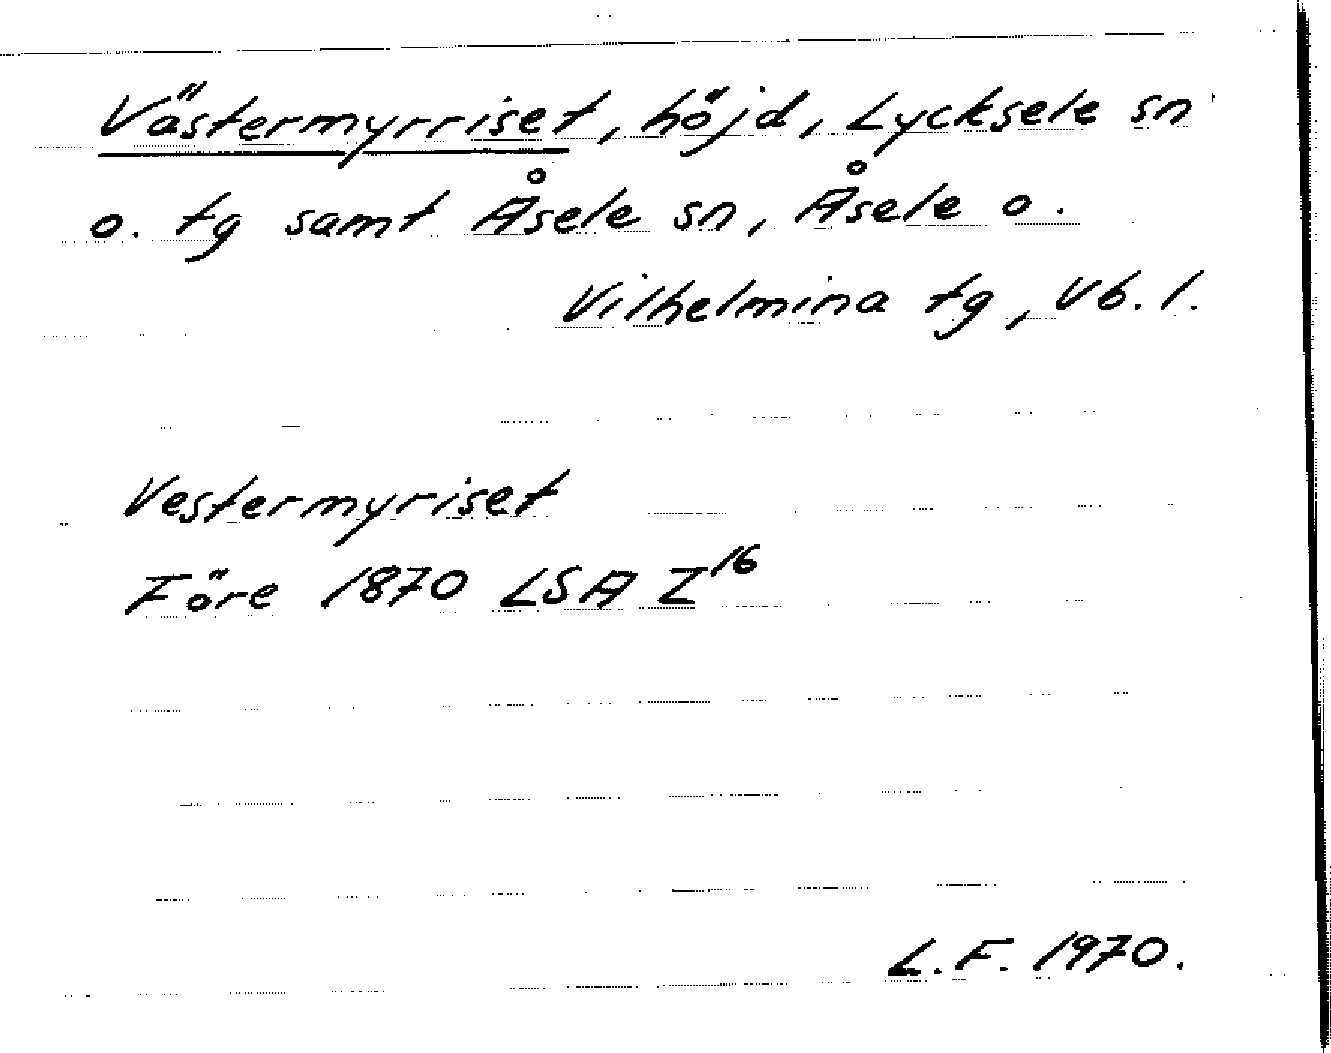 Västermyrriset, höjd, Lycksele sn
o. tg samt Åsele sn, Åsele o.
Vilhelmina tg, Vb. l.
Vestermyriset
Före 1870 LSA Z16
L.F. 1970.